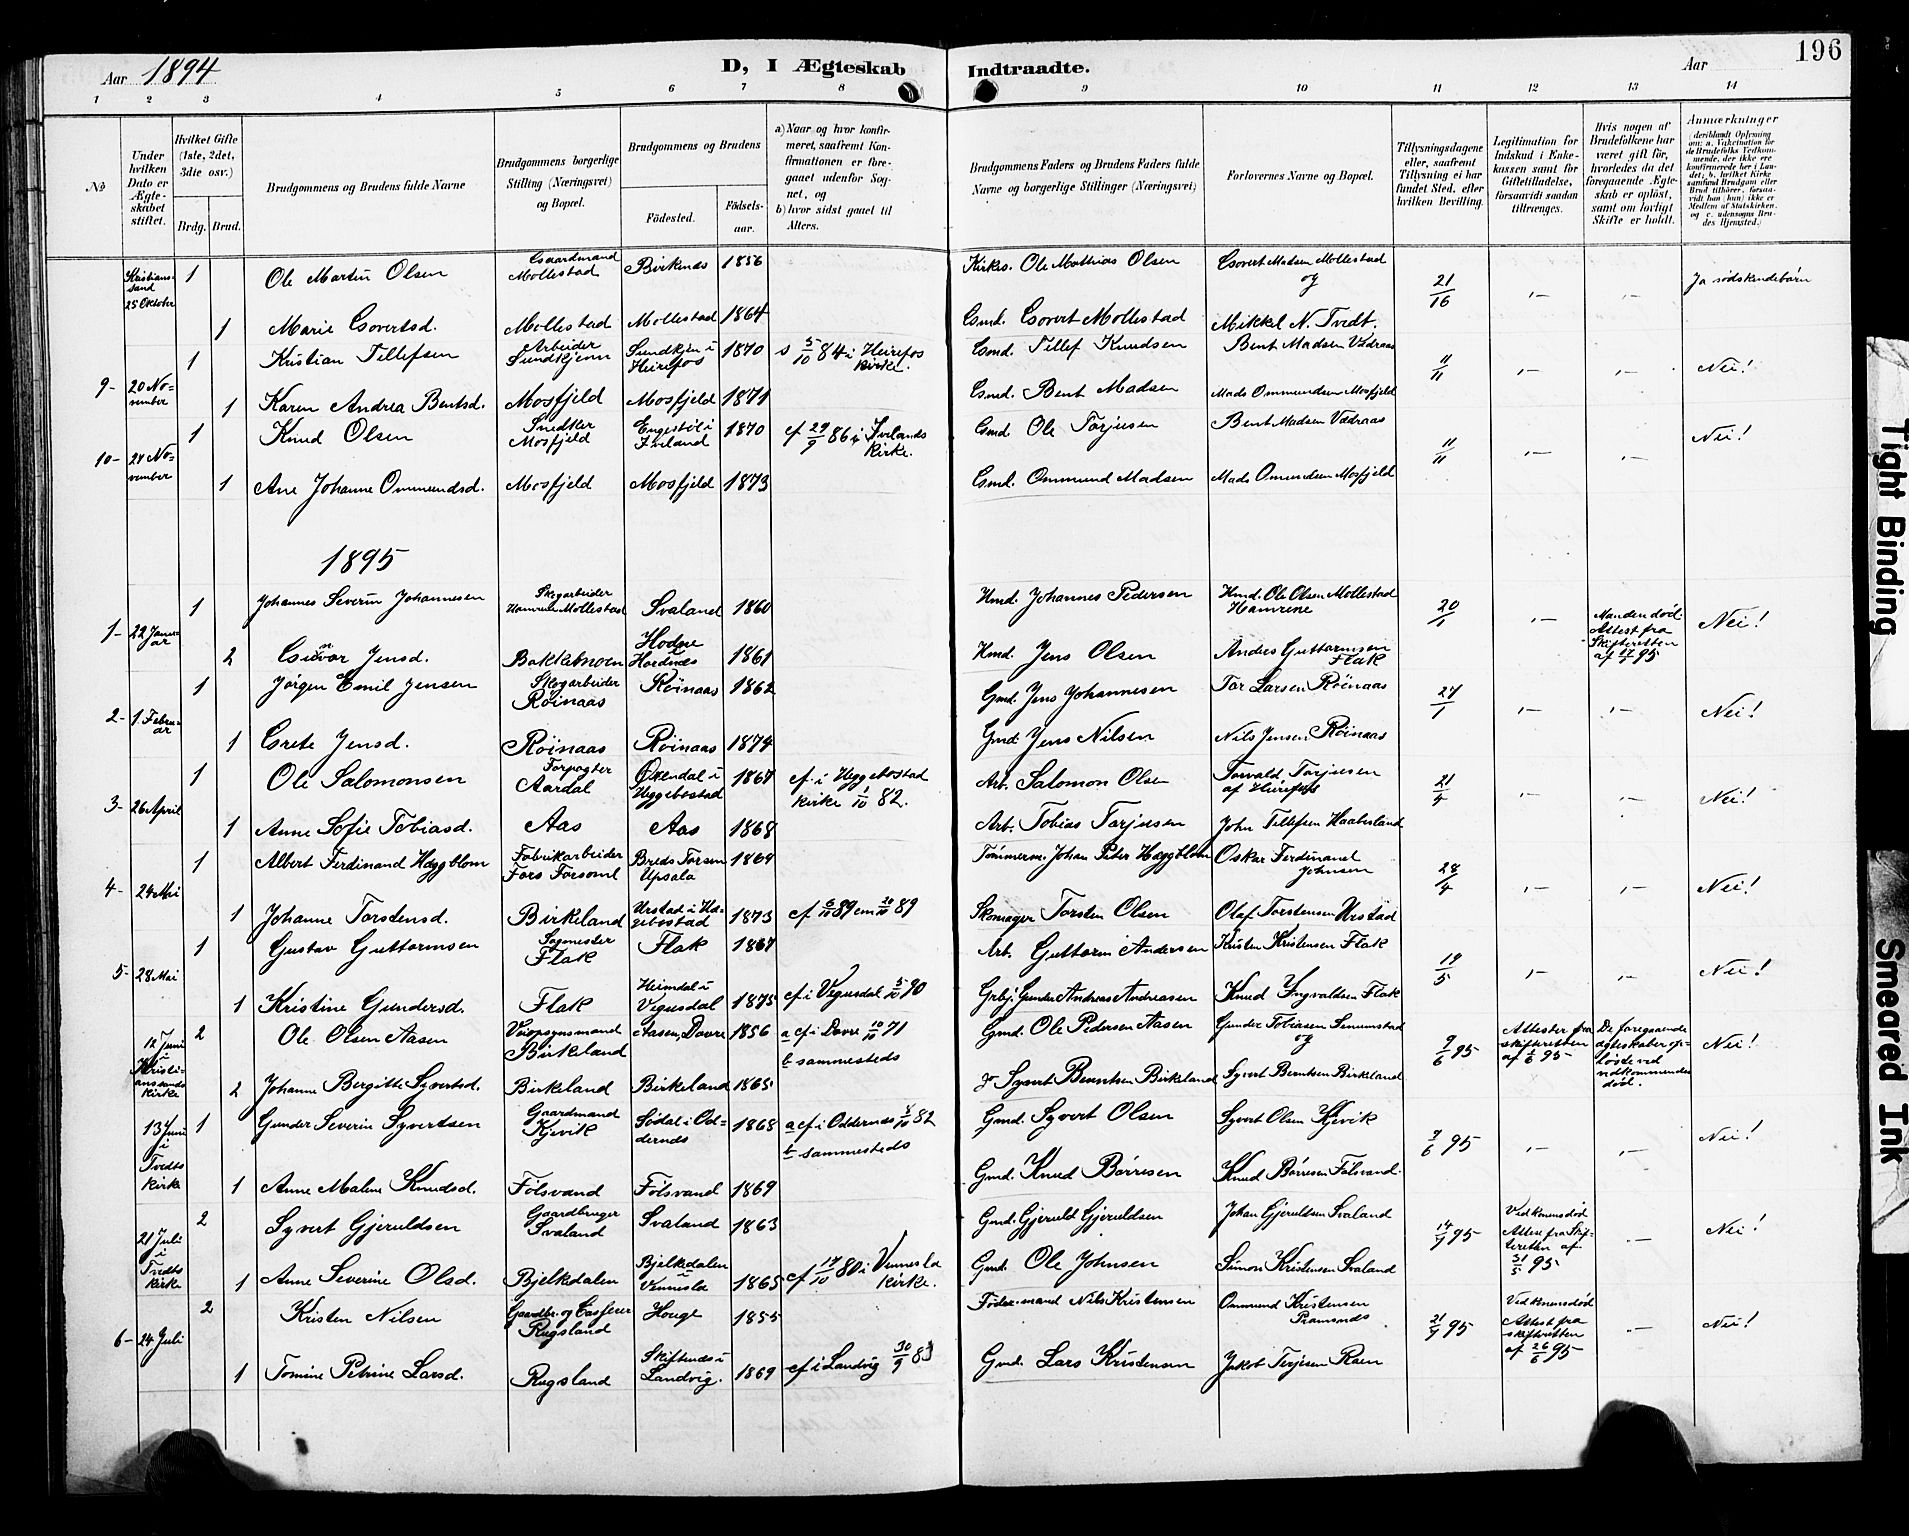 Aar 1894
D, I Ægteskab Indtraadte.
Aar
196
1 2 3 4 5 6 7 8 9 10 11 12 13 14
No
Under hvilken Dato er Ægteskabet stiftet.
Hvilket Gifte (1ste, 2det, 3die osv.)
Brdg. Brud.
Brudgommens og Brudens fulde Navne
Brudgommens borgerlige Stilling (Næringsvei) og Bopæl.
Brudgommens og Brudens
Födested. Födsels-aar.
a) Naar og hvor konfirmeret, saafremt Konfirmationen er foregaaet udenfor Sognet, og
b) hvor sidst gaaet til Alters.
Brudgommens Faders og Brudens Faders fulde Navne og borgerlige Stillinger (Næringsvei)
Forlovernes Navne og Bopæl.
Tillysningsdagene eller, saafremt Tillysning ei har fundet Sted, efter hvilken Bevilling.
Legitimation for Indskud i Enkekassen samt for Giftetilladelse, forsaavidt saadan tiltrænges.
Hvis nogen af Brudefolkene har været gift för, hvorledes da det foregaaende Ægteskab er oplöst, samt om lovligt Skifte er holdt.
Anmærkninger
Kristianssand 25 Oktober 1 Ole Martin Olsen Gaardmand Mollestad Birkenæs 1856 Kirkes. Ole Mathias Olsen Govert Madsen Mollestad og 21/16 ,— ,— Ja sødskendebørn
1 Marie Govertsd. Mollestad Mollestad 1864 Gmd. Govert Mollestad Mikkel N. Tvedt.
9- 20 November 1 Kristian Tellefsen Arbeider Sundkjenn Sundkjen i Heirefos 1870 5/10 84 i Heirefos kirke. Gmd. Tellef Knudsen Bent Madsen Vadraas 11/11 ,— ,— Nei!
1 Karen Andrea Bentsd. Mosfjeld Mosfjeld 1871 Gmd. Bent Madsen Mads Ommundsen Mosfjeld
10- 24 November 1 Knud Olsen Snedker Mosfjeld Engestöl i Iveland 1870 cf 29/9 86 i Ivelands kirke. Gmd. Ole Torjusen Bent Madsen Vadraas 11/11 ,— ,— Nei!
1 Ane Johanne Ommundsd. Mosfjeld Mosfjeld 1873 Gmd. Ommund Madsen Mads Omundsen Mosfjeld
1895
1- 22 Januar 1 Johannes Severin Johannesen Skogarbeider Hamrene Mollestad Svaland 1860 Hmd. Johannes Pedersen Hmd. Ole Olsen Mollestad Hamrene 20/1 ,— Manden død. Attest fra Skifteretten af 17/1 95 Nei!
2 Gunvor Jensd. Bakkebmoen Hodne Hordnæs 1861 Hmd. Jens Olsen Anders Guttormsen Flak
2- 1 Februar 1 Jørgen Emil Jensen Skogarbeider Røinaas Røinaas 1862 Gmd. Jens Johannesen Tor Larsen Røinaas 27/1 ,— ,— Nei!
1 Grete Jensd. Røinaas Røinaas 1874 Gmd Jens Nilsen Nils Jensen Røinaas
3- 26 April 1 Ole Salomonsen Forpagter Aardal Økendal i Heggebostad 1867 cf. i Heggebostad kirke 1/10 82. Arb. Salomon Olsen Torvald Torjusen af Heirefos 21/4 ,— ,— Nei!
1 Anne Sofie Tobiasd. Aas Aas 1868 Arb. Tobias Torjusen John Tellefsen Haabesland
4- 24 Mai 1 Albert Ferdinand Hæggblom Fabrikarbeider Fors Forsoml Breds Forsen Upsala 1864 Tømmerm. Johan Peter Hæggblom Oskar Ferdinand Johnsen 28/4 ,— ,— Nei!
1 Johanne Torstensd. Birkeland Urstad i Hægebostad 1873 cf 6/10 89 cm 20/10 89 Skomager Torsten Olsen Olaf Torstensen Urstad
5- 28 Mai 1 Gustav Guttormsen Sagmester Flak Flak 1867 Arb. Guttorm Andersen Kristen Kristensen Flak 19/5 ,— ,— Nei!
1 Kristine Gundersd. Flak Heimdal i Vegusdal 1875 cf i Vegusdal 5/10 90 Grbj. Gunder Andreas Andreasen Knud Yngvaldsen Flak
12 Juni i Kristianssands kirke 2 Ole Olsen Aasen Veiopsynsmand Birkeland Aasen, Dovre 1856 a cf i Dovre 10/10 71 b sammesteds Gmd. Ole Pedersen Aasen Gunder Tobiasen Senumstad og 9/6 95 Attester fra skifteretten af 1/6 95- De foregaaende ægteskaber opløste ved vedkommendes død. Nei!
2 Johanne Bergitte Syvertsd. Birkeland Birkeland 1865 Syvert Berntsen Birkeland Syvert Berntsen Birkeland
13 Juni i Tvedts kirke 1 Gunder Severin Syvertsen Gaardmand Kjevik Sødal i Oddernæs 1868 a cf i Oddernæs 8/10 82 b sammesteds Gmd. Syvert Olsen Syvert Olsen Kjevik 9/6 95 ,— ,— Nei!
1 Anne Malene Knudsd. Følsvand Følsvand 1869 Gmd. Knud Børresen Knud Børresen Følsvand.
21 Juli i Tvedts kirke 2 Syvert Gjeruldsen Gaardbruger Svaland Svaland 1863 Gmd. Gjeruld Gjeruldsen Johan Gjeruldsen Svaland 14/7 95 Ved konens død Attest fra Skifteretten af 31/5 95- ,— Nei!
1 Anne Severine Olsd. Bjelkdalen Bjelkdalen i Vennesla 1865 cf 17/10 80 i Vennesla kirke. Gmd. Ole Johnsen Simon Kristensen Svaland
6- 24 Juli 2 Kristen Nilsen Gaardbr. og Gasfører Rugsland Houge 1855 Føderaadsmand Nils Kristensen Ommund Kristensen Ramsnæs 21/7 95 Ved konens død Attest fra skifteretten af 26/6 95- ,— Nei!
1 Tomine Petrine Larsd. Rugsland Skiftenæs i Landvig. 1869 cf i Landvig 30/9 83 Gmd. Lars Kristensen Jakob Terjesen Ræn
Tight Binding
Smeared Ink